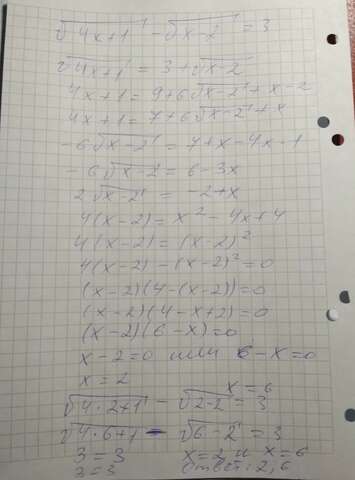 √4x+1 - √x-2 = 3
√4x+1 = 3+√x-2
4x+1 = 9+6√x-2+x-2
4x+1 = 7+6√x-2+x
-6√x-2 = 7+x-4x-1
-6√x-2 = 6-3x
2√x-2 = -2+x
4(x-2) = x²-4x+4
4(x-2) = (x-2)²
4(x-2)-(x-2)²=0
(x-2)(4-(x-2))=0
(x-2)(4-x+2)=0
(x-2)(6-x)=0
x-2=0 или 6-x=0
x=2 x=6
√4·2+1 - √2-2 = 3
√4·6+1 - √6-2 = 3
3=3 x=2 и x=6
3=3 Ответ: 2; 6